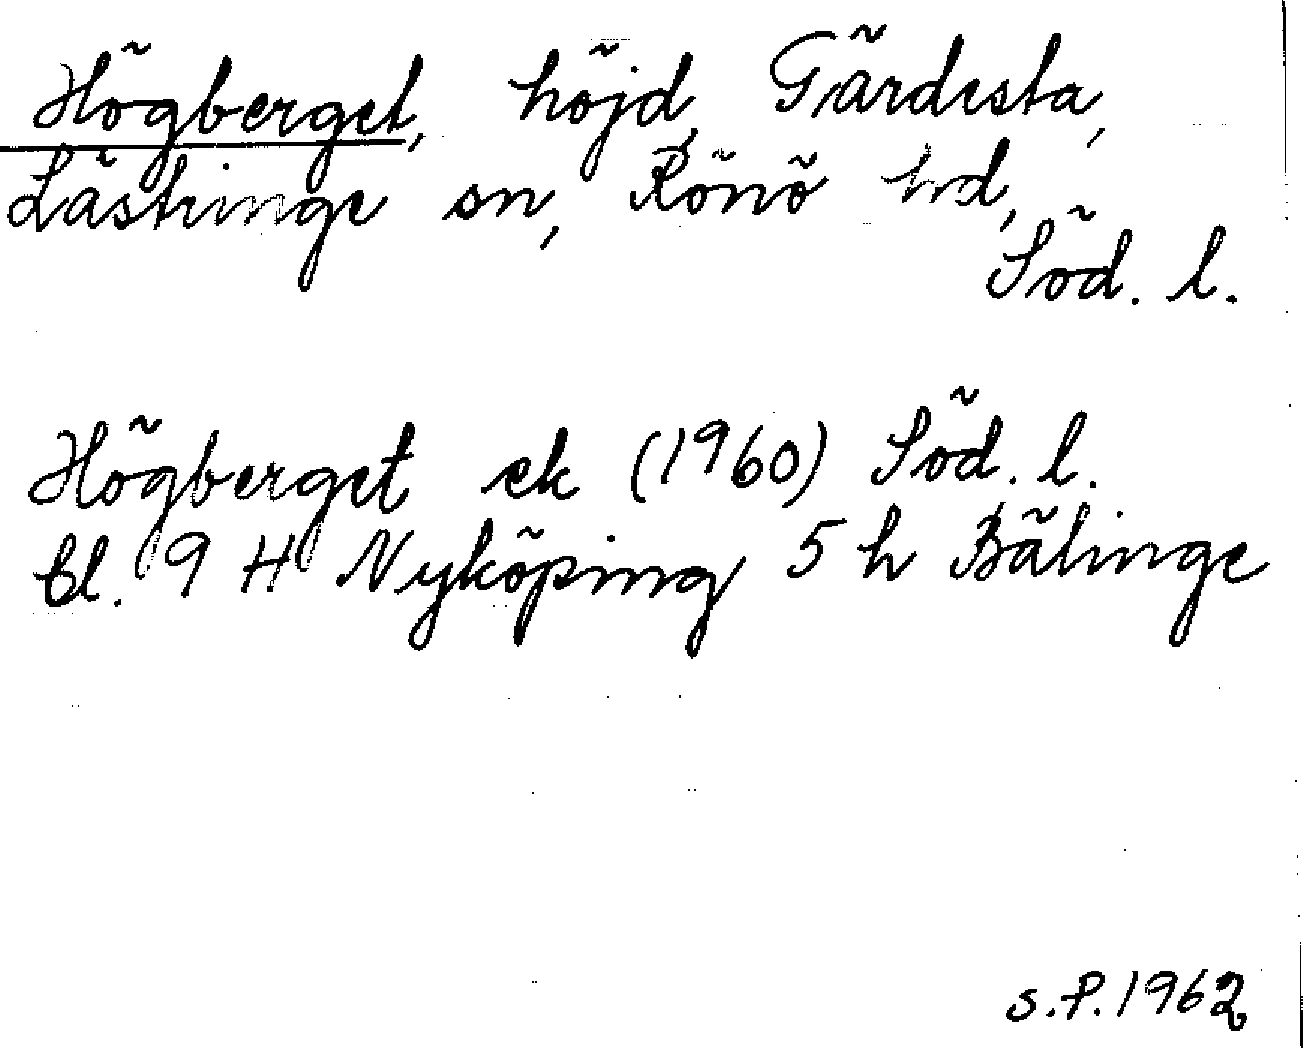 Högberget, höjd, Gärdesta,
Lästringe sn, Rönö hd,
Söd. l.
Högberget ek (1960) Söd. l.
bl. 9 H Nyköping 5 h Bälinge
S.P. 1962